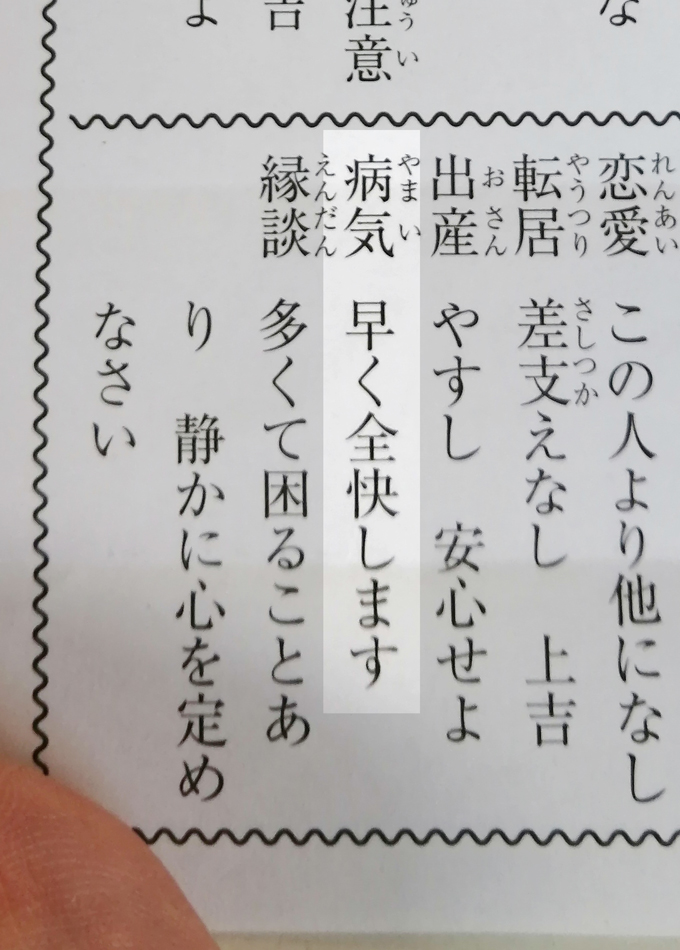 な
注意
ゅうい
吉
よ
恋愛 この人より他になし
れんあい
転居 差支えなし 上吉
やうつり さしつか
出産 やすし 安心せよ
おさん
病気 早く全快します
やまい
縁談 多くて困ることあ
えんだん
り 静かに心を定め
なさい